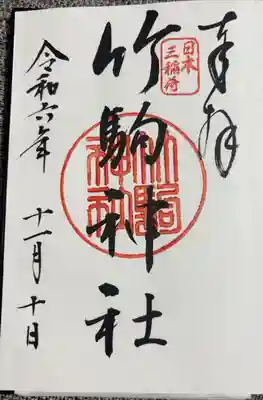 奉拝
日本
三稲荷
竹駒神社
竹駒
神社
令和六年 十一月十日